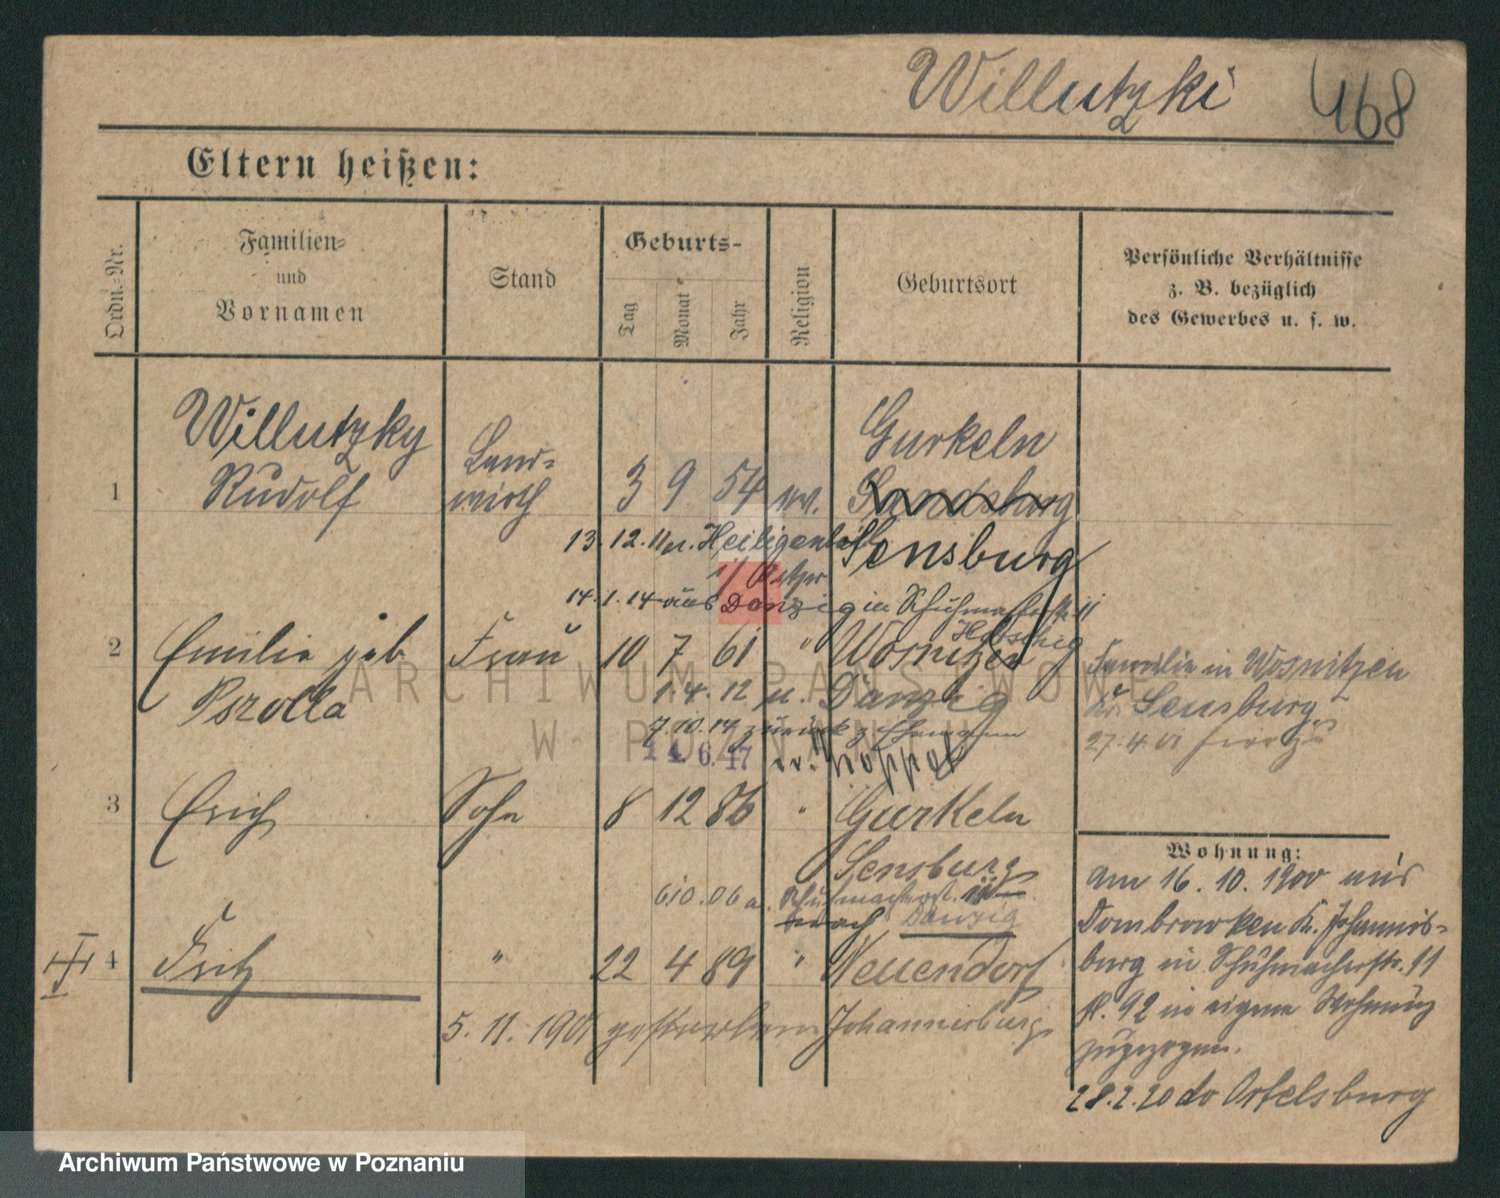 Willutzki 468
Eltern heißen:
Ordn.-Nr.
Familien-
und
Vornamen
Stand
Geburts-
Tag
Monat
Jahr
Religion
Geburtsort
Persönliche Verhältnisse
z. B. bezüglich
des Gewerbes u. s. w.
Willutzky Gurkeln
1 Rudolf Land-
wirth 3 9 54 ev.
Sensburg
13. 12. 11
14. 1. 14 aus Danzig in Schuhmacherstr. 11
2 Emilie geb. Frau 10 7 61 " Wosnitzen
Pszolla
1. 4. 12 Danzig
7. 10. 14 zurück
14. 6. 17
Familie in Wosnitzen
Kr. Sensburg
27. 4. 01
3 Erich Sohn 8 12 86 " Gurkeln
Sensburg
6 10. 06 Danzig
4 Fritz " 22 4 89 " Neuendorf
5. 11. 1901 gestorben Johannisburg
Wohnung:
am 16. 10. 1900 aus
Dombrowken K. Johannis-
burg in Schuhmacherstr. 11
pt. 92 in eigene Wohnung
zugezogen.
28. 2. 20 do Ortelsburg
ARCHIWUM PAŃSTWOWE
W POZNANIU
Archiwum Państwowe w Poznaniu